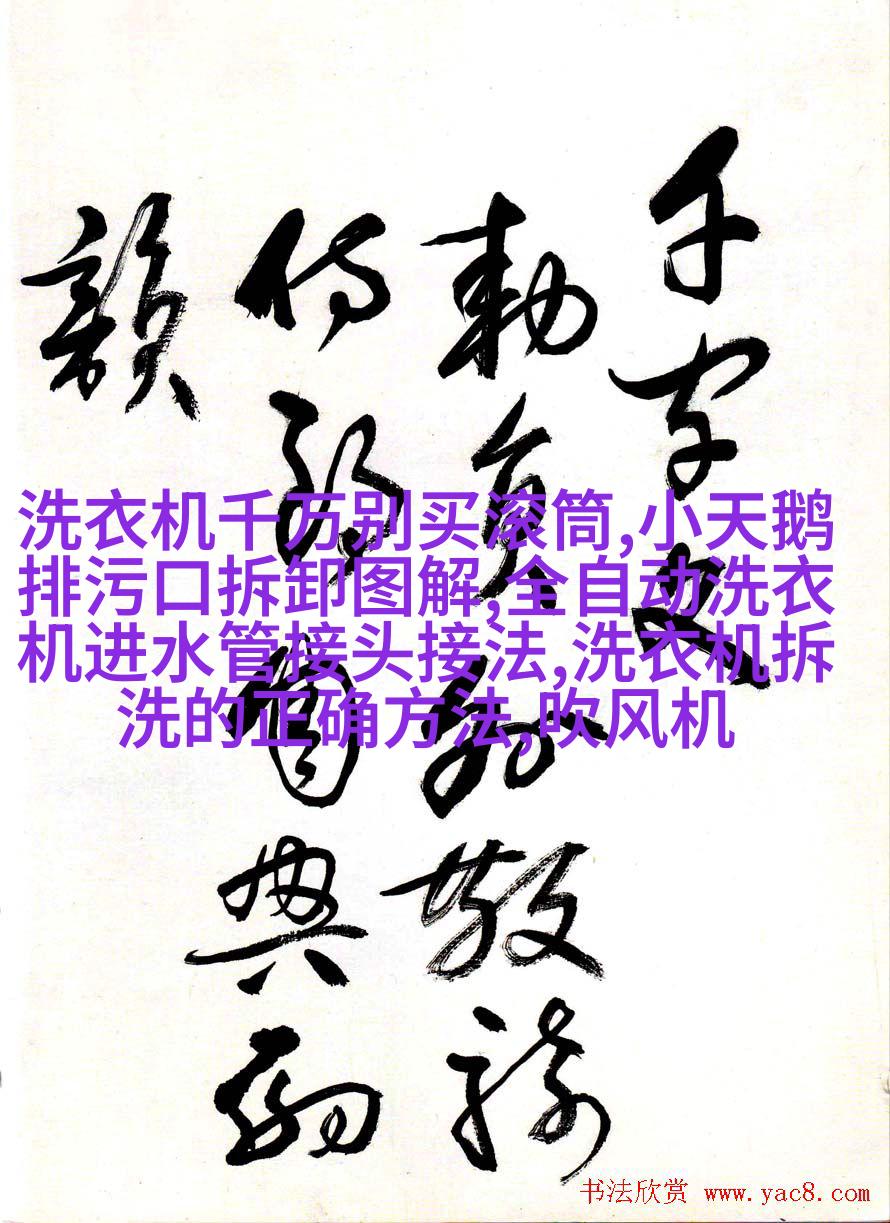 千字文
勅員外散騎
侍郎周興嗣
韻
洗衣机千万别买滚筒,小天鹅
排污口拆卸图解,全自动洗衣
机进水管接头接法,洗衣机拆
洗的正确方法,吹风机
书法欣赏 www.yac8.com